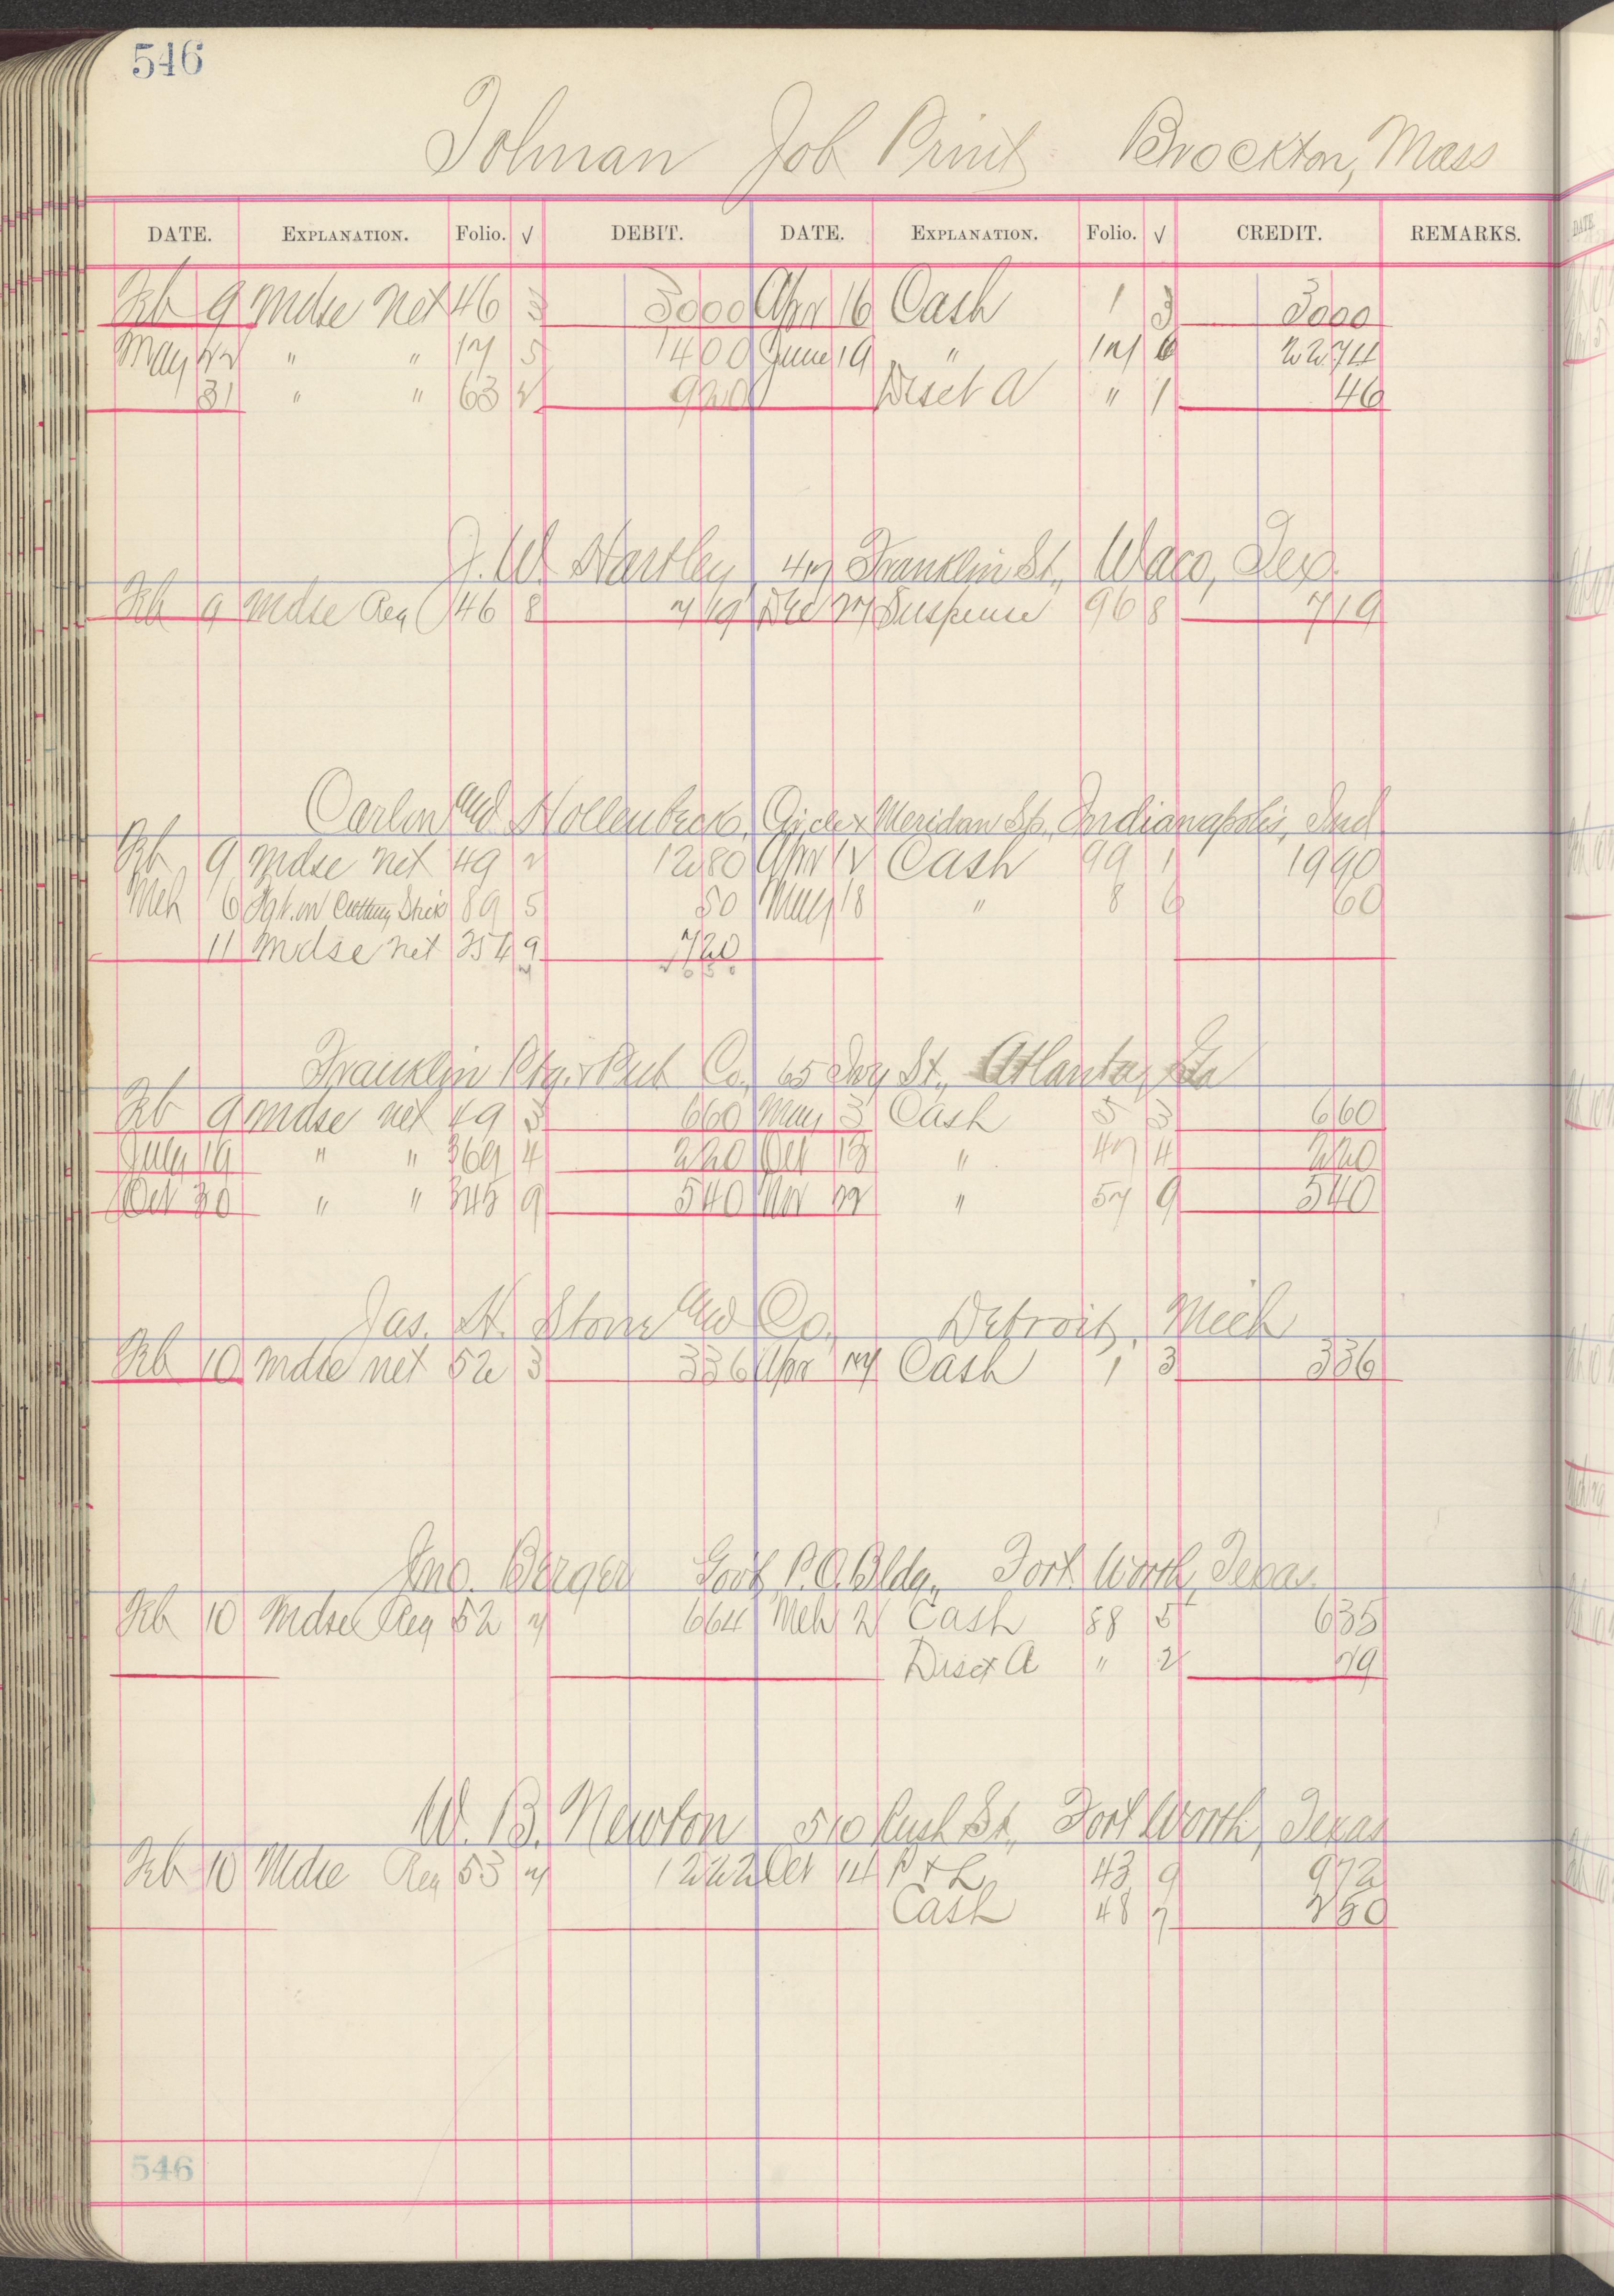 546
Tolman Job Print Brockton, Mass
DATE. EXPLANATION. Folio. √ DEBIT. DATE. EXPLANATION. Folio. √ CREDIT. REMARKS.
Feb 9 Mdse net 46 3 3000 Apr 16 Cash 1 3 3000
May 22 " " 17 5 1400 June 19 " 121 6 2274
31 " " 63 2 920 Disct A " 1 46
J. W. Hartley, Franklin St., Waco, Tex.
Feb 9 Mdse Reg 46 8 719 Dec 27 Suspense 96 8 719
Carlon and Hollenbeck, Meridan St., Indianapolis, Ind
Feb 9 Mdse net 49 2 1280 Apr 12 Cash 99 1 1990
Mch 6 Cutting Stick 89 5 50 May 18 " 8 6 60
11 Mdse net 354 9 720
Franklin Ptg. & Pub Co. 65 Ivy St., Atlanta, Ga
Feb 9 Mdse net 49 3 660 May 3 Cash 5 3 660
July 19 " " 369 4 220 Oct 13 " 47 4 220
Oct 30 " " 345 9 540 Nov " 57 9 540
Jas. H. Stone and Co. Detroit, Mich
Feb 10 Mdse net 52 3 336 Apr 27 Cash 1 3 336
Jno. Berger Govt P.O. Bldg. Fort Worth, Texas
Feb 10 Mdse Reg 52 7 664 Mch 21 Cash 88 5 635
Disct A " 2 29
W. B. Newton 510 St., Fort Worth, Texas
Feb 10 Mdse Reg 53 7 1222 Oct 14 P & L 43 9 972
Cash 48 7 250
546